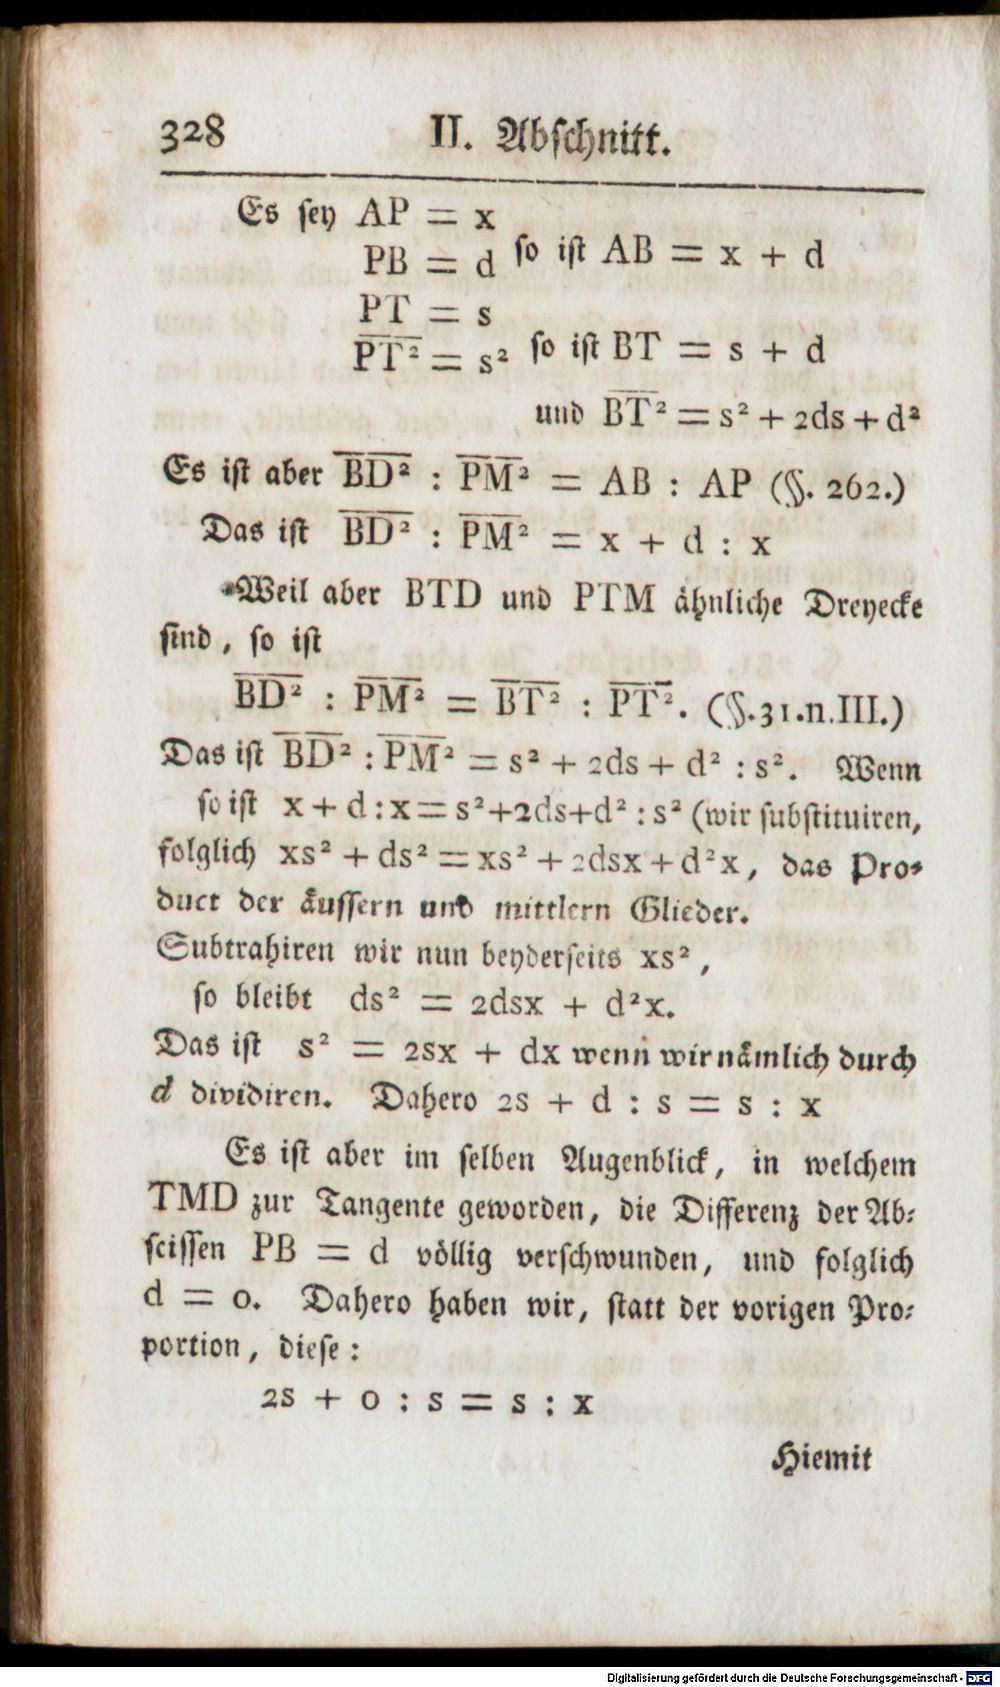 328 II. Abschnitt.
Es sey AP = x
PB = d so ist AB = x + d
PT = s
P̅T̅² = s² so ist BT = s + d
und B̅T̅² = s² + 2ds + d²
Es ist aber B̅D̅² : P̅M̅² = AB : AP (§. 262.)
Das ist B̅D̅² : P̅M̅² = x + d : x
Weil aber BTD und PTM ähnliche Dreyecke
sind, so ist
B̅D̅² : P̅M̅² = B̅T̅² : P̅T̅². (§.31.n.III.)
Das ist B̅D̅² : P̅M̅² = s² + 2ds + d² : s². Wenn
so ist x + d : x = s²+2ds+d² : s² (wir substituiren,
folglich xs² + ds² = xs² + 2dsx + d²x, das Pro-
duct der äussern und mittlern Glieder.
Subtrahiren wir nun beyderseits xs²,
so bleibt ds² = 2dsx + d²x.
Das ist s² = 2sx + dx wenn wir nämlich durch
d dividiren. Dahero 2s + d : s = s : x
Es ist aber im selben Augenblick, in welchem
TMD zur Tangente geworden, die Differenz der Ab-
scissen PB = d völlig verschwunden, und folglich
d = 0. Dahero haben wir, statt der vorigen Pro-
portion, diese:
2s + 0 : s = s : x
Hiemit
Digitalisierung gefördert durch die Deutsche Forschungsgemeinschaft - DFG